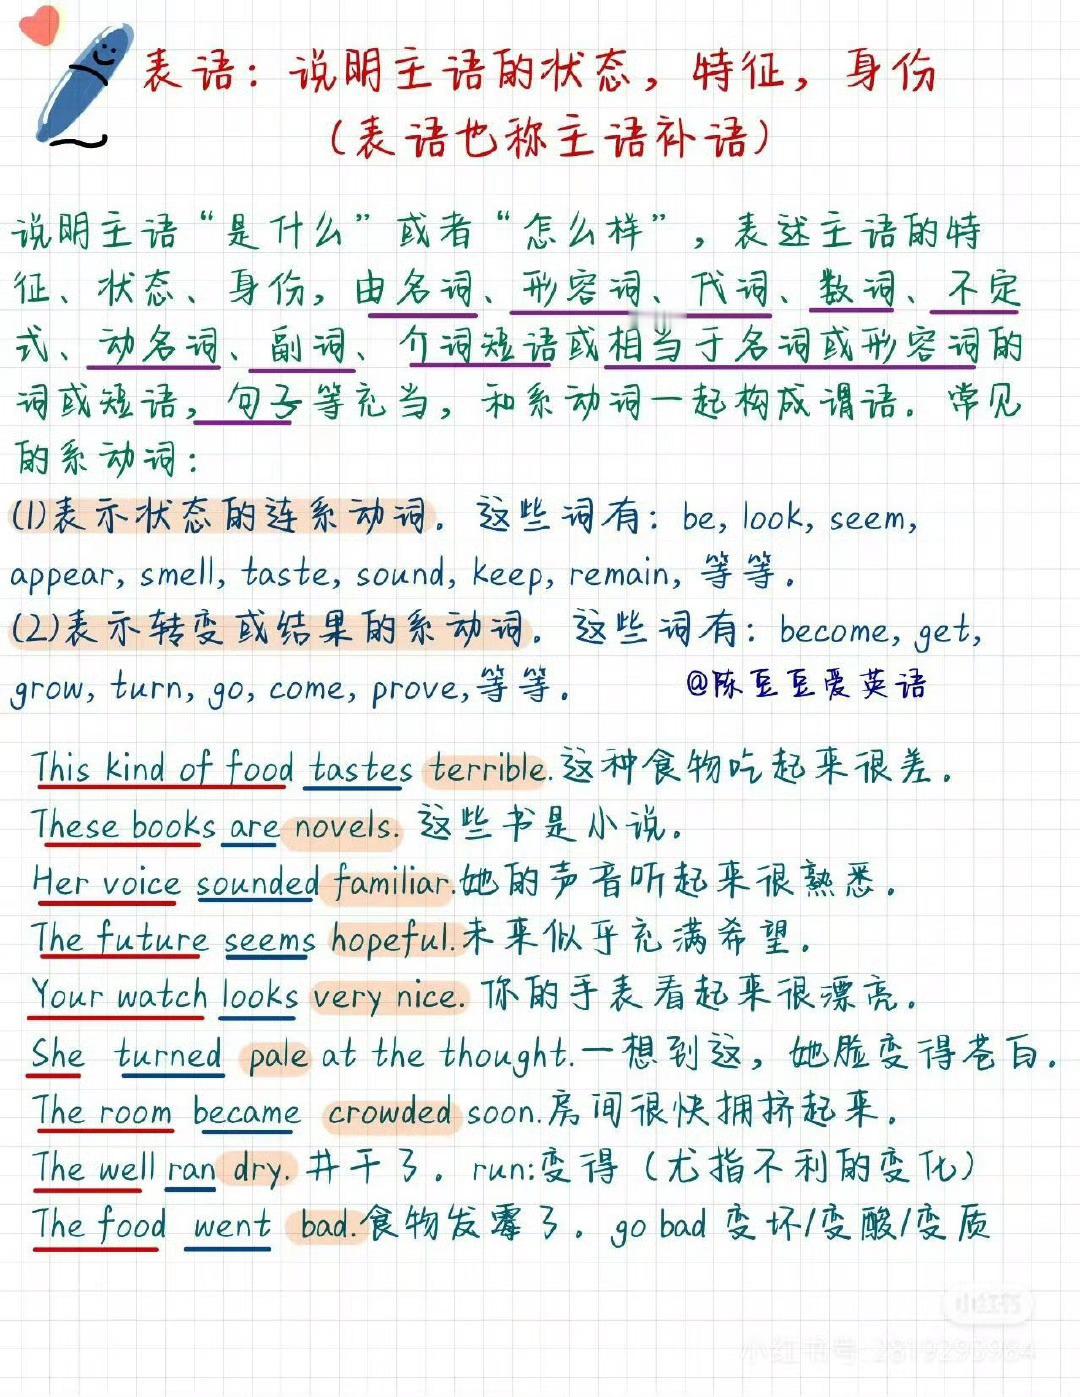 表语：说明主语的状态，特征，身份
（表语也称主语补语）
说明主语“是什么”或者“怎么样”，表述主语的特
征、状态、身份，由名词、形容词、代词、数词、不定
式、动名词、副词、介词短语或相当于名词或形容词的
词或短语，句子等充当，和系动词一起构成谓语。常见
的系动词：
(1)表示状态的连系动词。这些词有：be, look, seem,
appear, smell, taste, sound, keep, remain, 等等.
(2)表示转变或结果的系动词。这些词有：become, get,
grow, turn, go, come, prove,等等.
@陈豆豆爱英语
This kind of food tastes terrible.这种食物吃起来很差.
These books are novels. 这些书是小说.
Her voice sounded familiar.她的声音听起来很熟悉.
The future seems hopeful.未来似乎充满希望.
Your watch looks very nice. 你的手表看起来很漂亮.
She turned pale at the thought.一想到这，她脸变得苍白.
The room became crowded soon.房间很快拥挤起来.
The well ran dry. 井干了. run:变得（尤指不利的变化）
The food went bad.食物发霉了. go bad 变坏/变酸/变质
小红书
小红书号: 2819293984